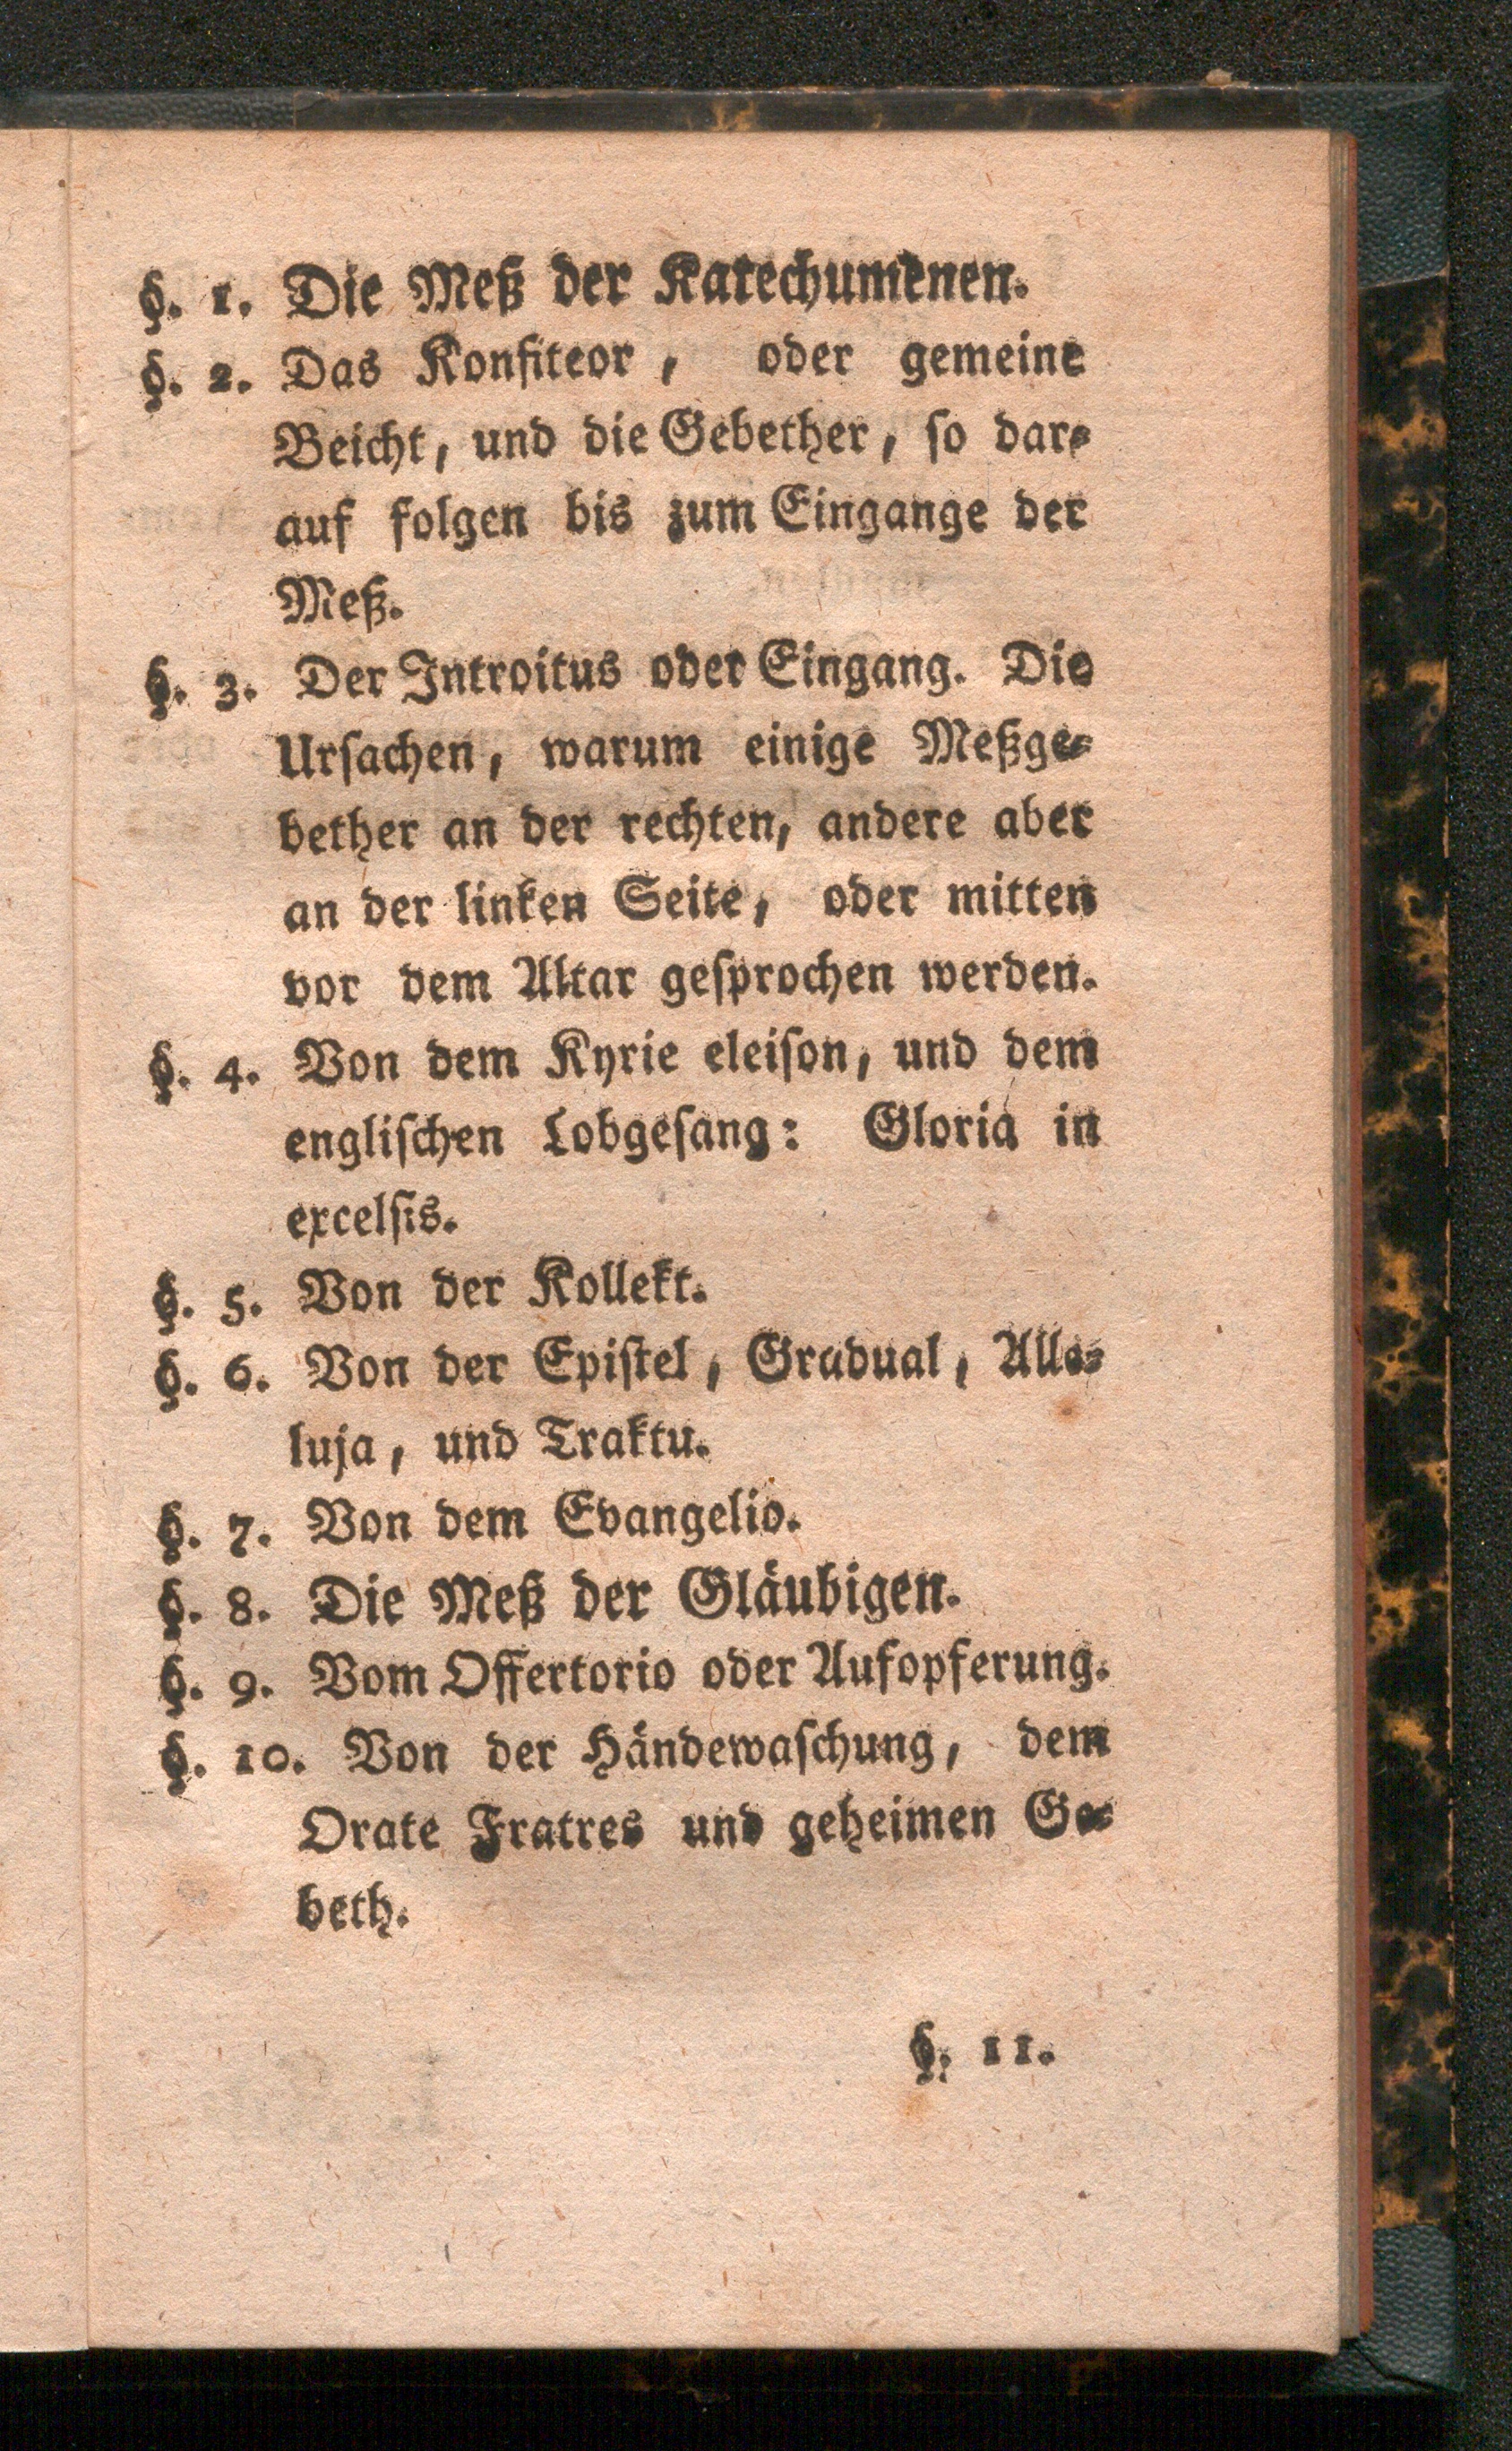 §. 1. Die Meß der Katechumenen.
§. 2. Das Konfiteor, oder gemeine
Beicht, und die Gebether, ſo dar⸗
auf folgen bis zum Eingange der
Meß.
§. 3. Der Introitus oder Eingang. Die
Urſachen, warum einige Meßge⸗
bether an der rechten, andere aber
an der linken Seite, oder mitten
vor dem Altar geſprochen werden.
§. 4. Von dem Kyrie eleiſon, und dem
engliſchen Lobgeſang: Gloria in
excelſis.
§. 5. Von der Kollekt.
§. 6. Von der Epiſtel, Gradual, Alle⸗
luja, und Traktu.
§. 7. Von dem Evangelio.
§. 8. Die Meß der Gläubigen.
§. 9. Vom Offertorio oder Aufopferung.
§. 10. Von der Händewaſchung, dem
Orate Fratres und geheimen Ge⸗
beth.
§. 11.